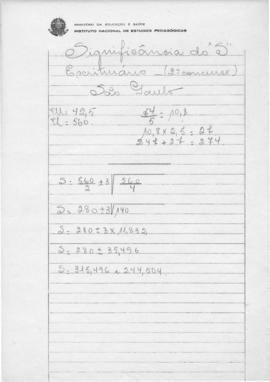 MINISTÉRIO DA EDUCAÇÃO E SAÚDE
INSTITUTO NACIONAL DE ESTUDOS PEDAGÓGICOS
Significância do "S"
Escriturário - (2º concurso)
São Paulo
M = 42,5
N = 560
54/5 = 10,8
10,8 x 2,5 = 27
247 + 27 = 274
S = 560/2 ± 3 √560/4
S = 280 ± 3 √140
S = 280 ± 3 x 11,832
S = 280 ± 35,496
S = 315,496 e 244,504